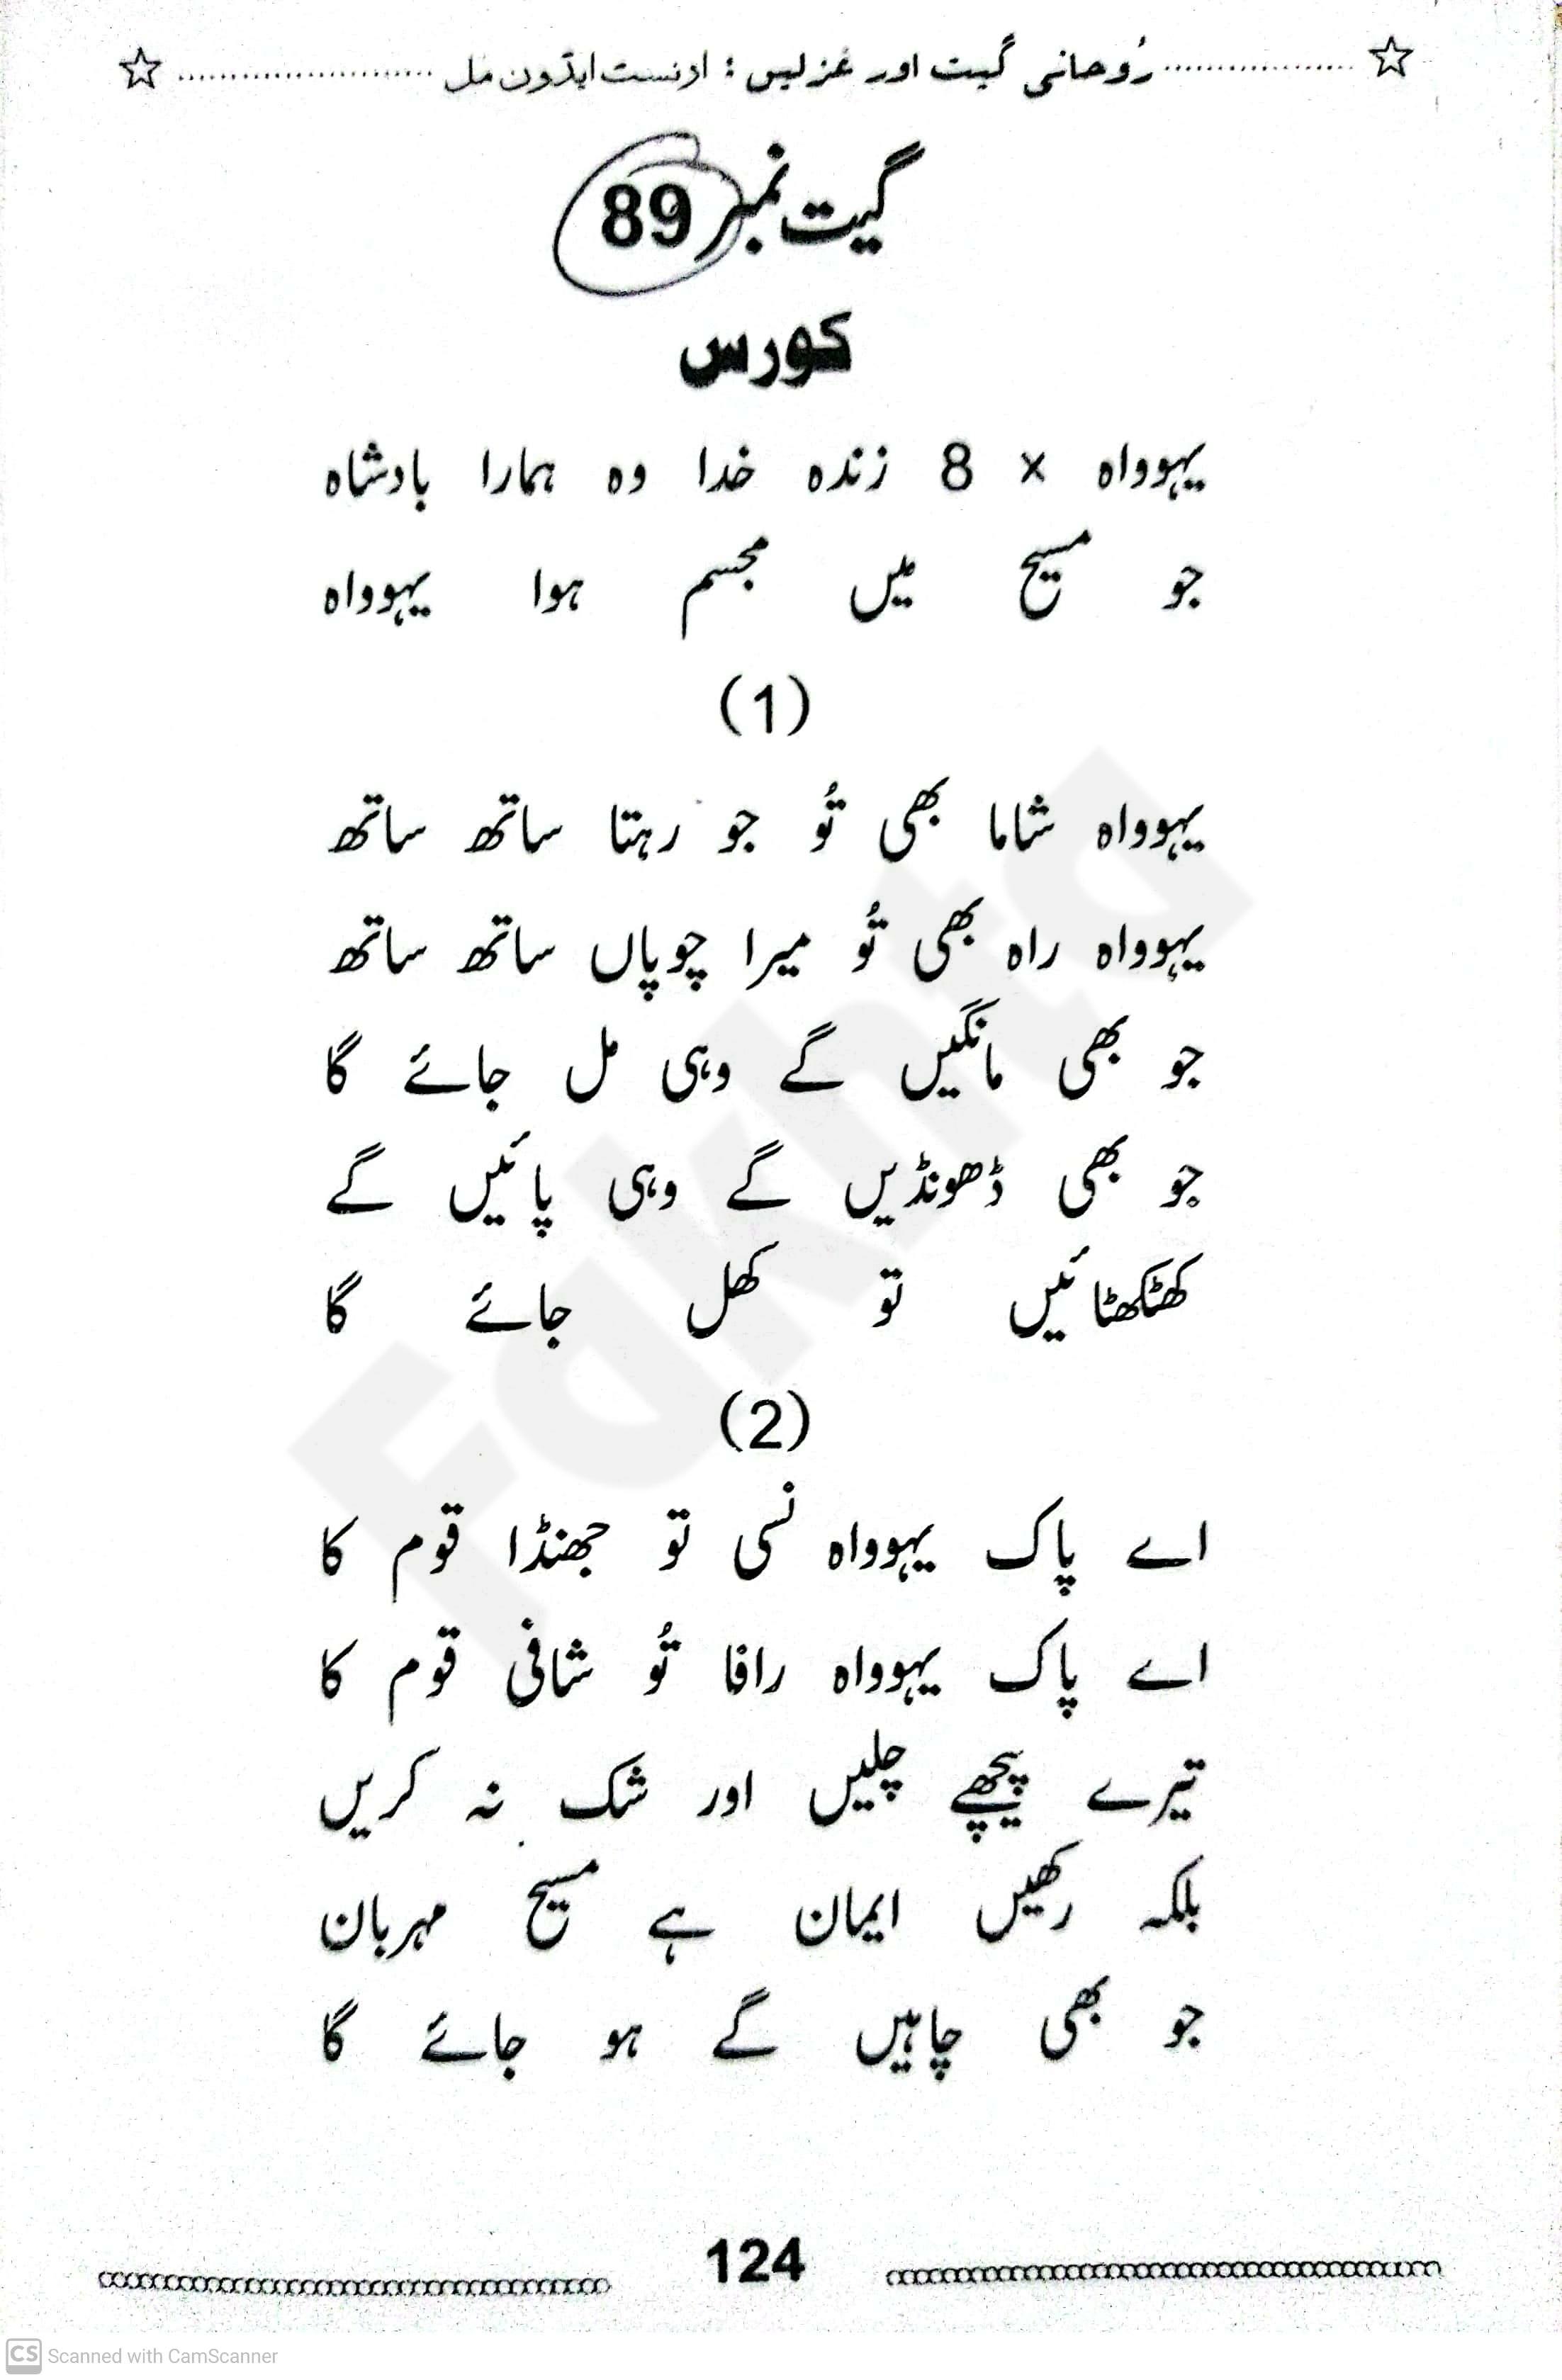 رُوحانی گیت اور غزلیں : ارنسٹ ایڈون مل
گیت نمبر 89
کورس
یہوواہ × 8 زندہ خدا وہ ہمارا بادشاہ
جو مسیح میں مجسم ہوا یہوواہ
(1)
یہوواہ شاما بھی تُو جو رہتا ساتھ ساتھ
یہوواہ راہ بھی تُو میرا چوپاں ساتھ ساتھ
جو بھی مانگیں گے وہی مل جائے گا
جو بھی ڈھونڈیں گے وہی پائیں گے
کھٹکھٹائیں تو کھل جائے گا
(2)
اے پاک یہوواہ نسی تو جھنڈا قوم کا
اے پاک یہوواہ رافا تُو شافی قوم کا
تیرے پیچھے چلیں اور شک نہ کریں
بلکہ رکھیں ایمان ہے مسیح مہربان
جو بھی چاہیں گے ہو جائے گا
124
Fakhta
CS Scanned with CamScanner